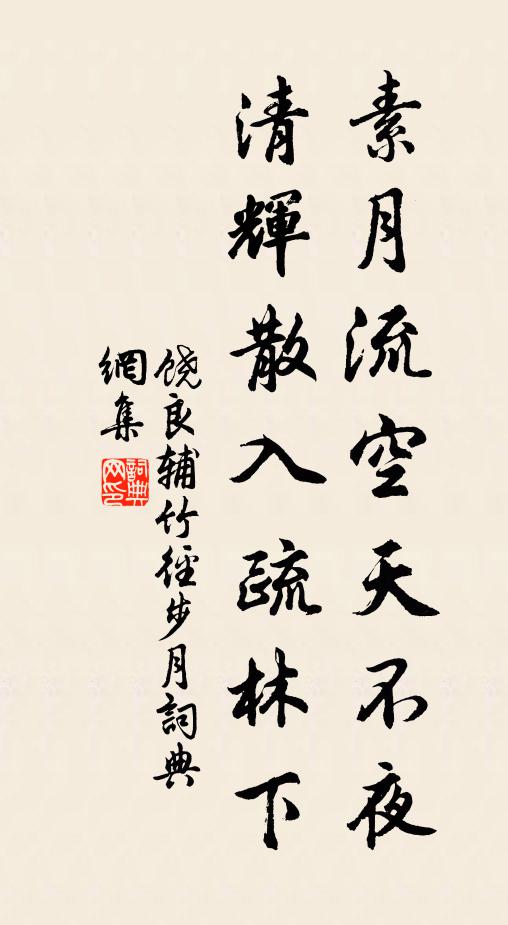 素月流空天不夜
清輝散入疏林下
饶良辅竹徑步月詞典
網集
詞典
网印